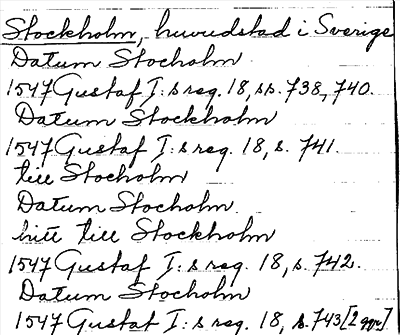 Stockholm, huvudstad i Sverige
Datum Stocholm
1547 Gustaf I:s reg. 18, ss. 738, 740.
Datum Stockholm
1547 Gustaf I:s reg. 18, s. 741.
till Stocholm
Datum Stocholm
hitt till Stockholm
1547 Gustaf I:s reg. 18, s. 742.
Datum Stocholm
1547 Gustaf I:s reg. 18, s. 743 [2 ggr]